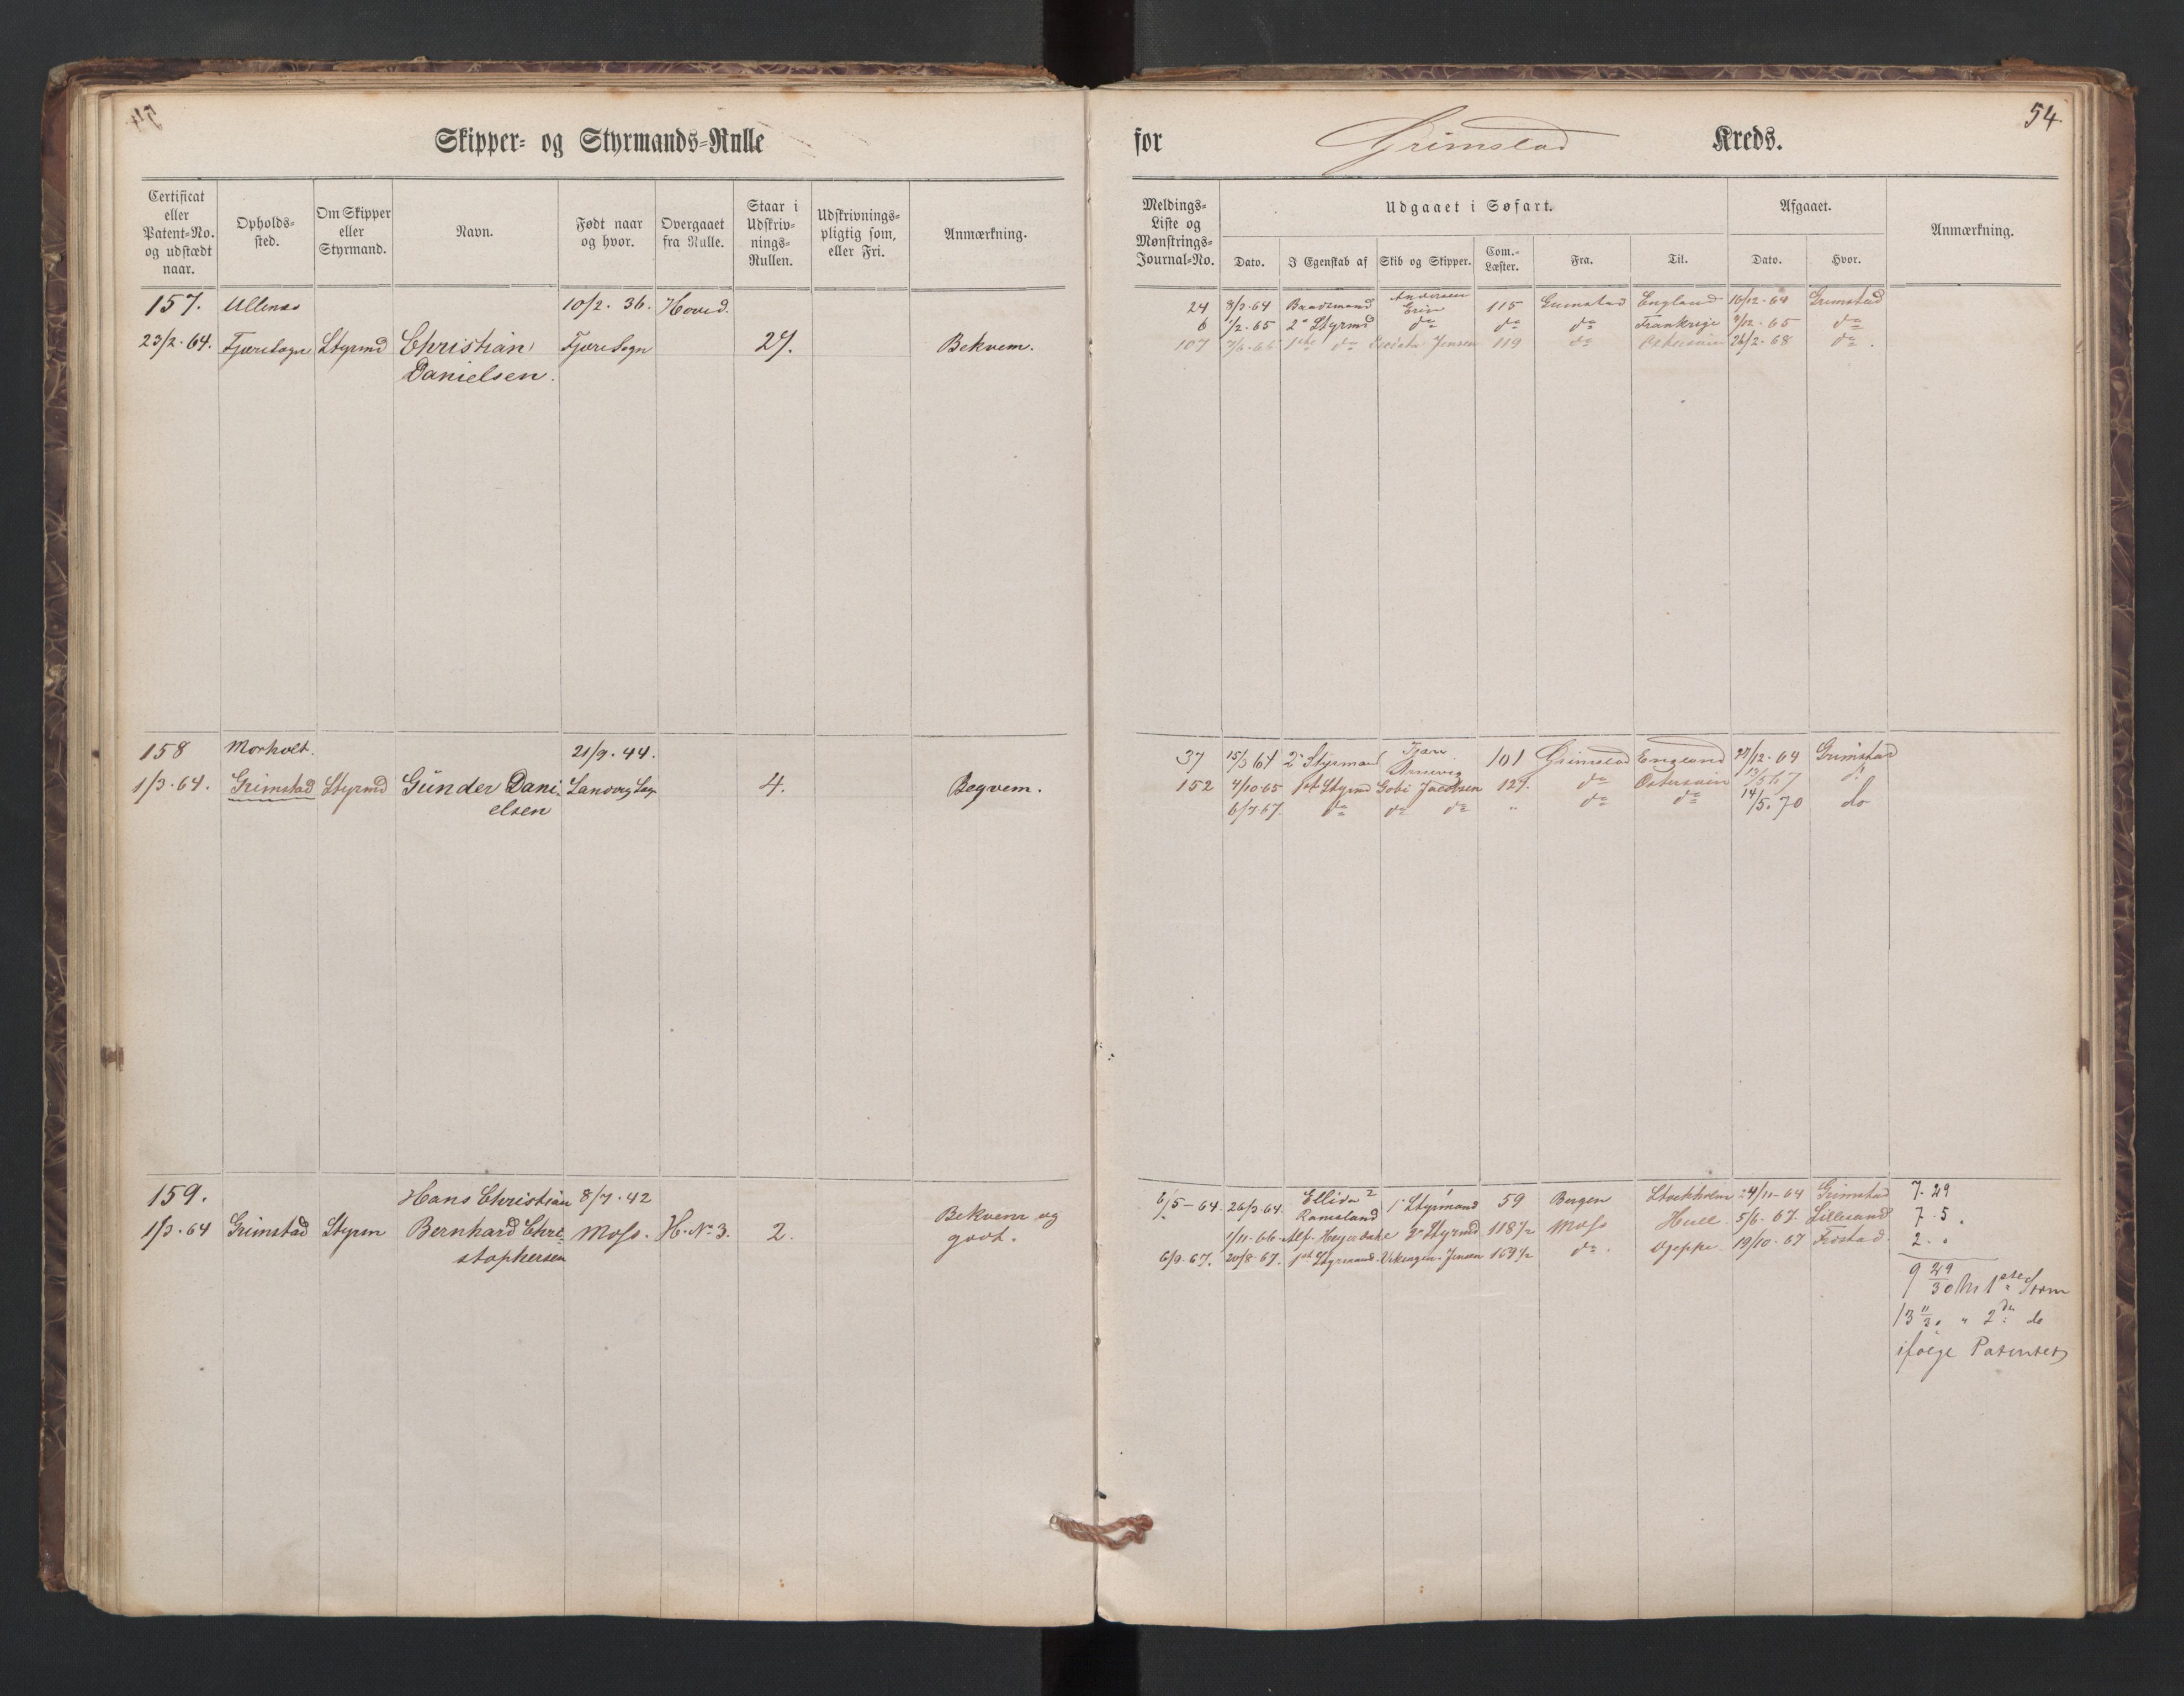 54
Skipper- og Styrmands-Rulle
for Grimstad Kreds.
54
Certificat eller Patent-No. og udstædt naar.
Opholds-sted.
Om Skipper eller Styrmand.
Navn.
Født naar og hvor.
Overgaaet fra Rulle.
Staar i Udskriv-nings-Rullen.
Udskrivnings-pligtig som, eller Fri.
Anmærkning.
Meldings-Liste og Mønstrings-Journal-No.
Udgaaet i Søfart.
Dato.
I Egenskab af
Skib og Skipper.
Com.-Læster.
Fra.
Til.
Afgaaet.
Dato.
Hvor.
Anmærkning.
157. Ullenæs 10/2. 36. Hoved.
23/2. 64. Fjæresogn Styrmd Christian Fjæresogn 27. Bekvem.
Danielsen.
24 8/3 64 Baadsmand Andersen Erin 115 Grimstad England 16/12. 64 Grimstad
6 1/2. 65 2n Styrmd do do do Frankrige 9/12. 65 do
107 7/6. 66 1ste do Jensen 119 do Østersøin 26/2. 68 do.
158 Morholt. 21/9. 44.
1/3. 64. Grimstad Styrmd Günder Dani- Landvig Sogn 4. Beqvem.
elsen
37 15/3 64 2n Styrmand 101 Grimstad England 27/12. 64 Grimstad
152 4/10. 65 1st Styrmd Gobi Jacobsen 127. do Østersøin 13/5 67 do
6/7 67. do do do " do do 14/5. 70 do
159. Hans Christian 8/7. 42
1/3. 64 Grimstad Styrm Bernhard Chri- Moss. H. No 3. 2. Bekvem og
stophersen godt.
6/5 - 64. 26/3. 64. Ellida 2 Ramsland 1. Styrmand 59 Bergen Stockholm 24/11 - 64 Grimstad 7. 29
1/11. 66. Alf. Heyerdahl 2n Styrmd 118 1/2 Moss Hull. 5/6. 67. Lillesand 7. 5.
6/9. 67. 20/8. 67. 1st Styrmand. Vikingen. Jensen 169 1/2 do. Dyeppe 19/10. 67 2. "
9 29/30 M 1ste Strm
13 11/30 " 2den do
ifølge Patentet